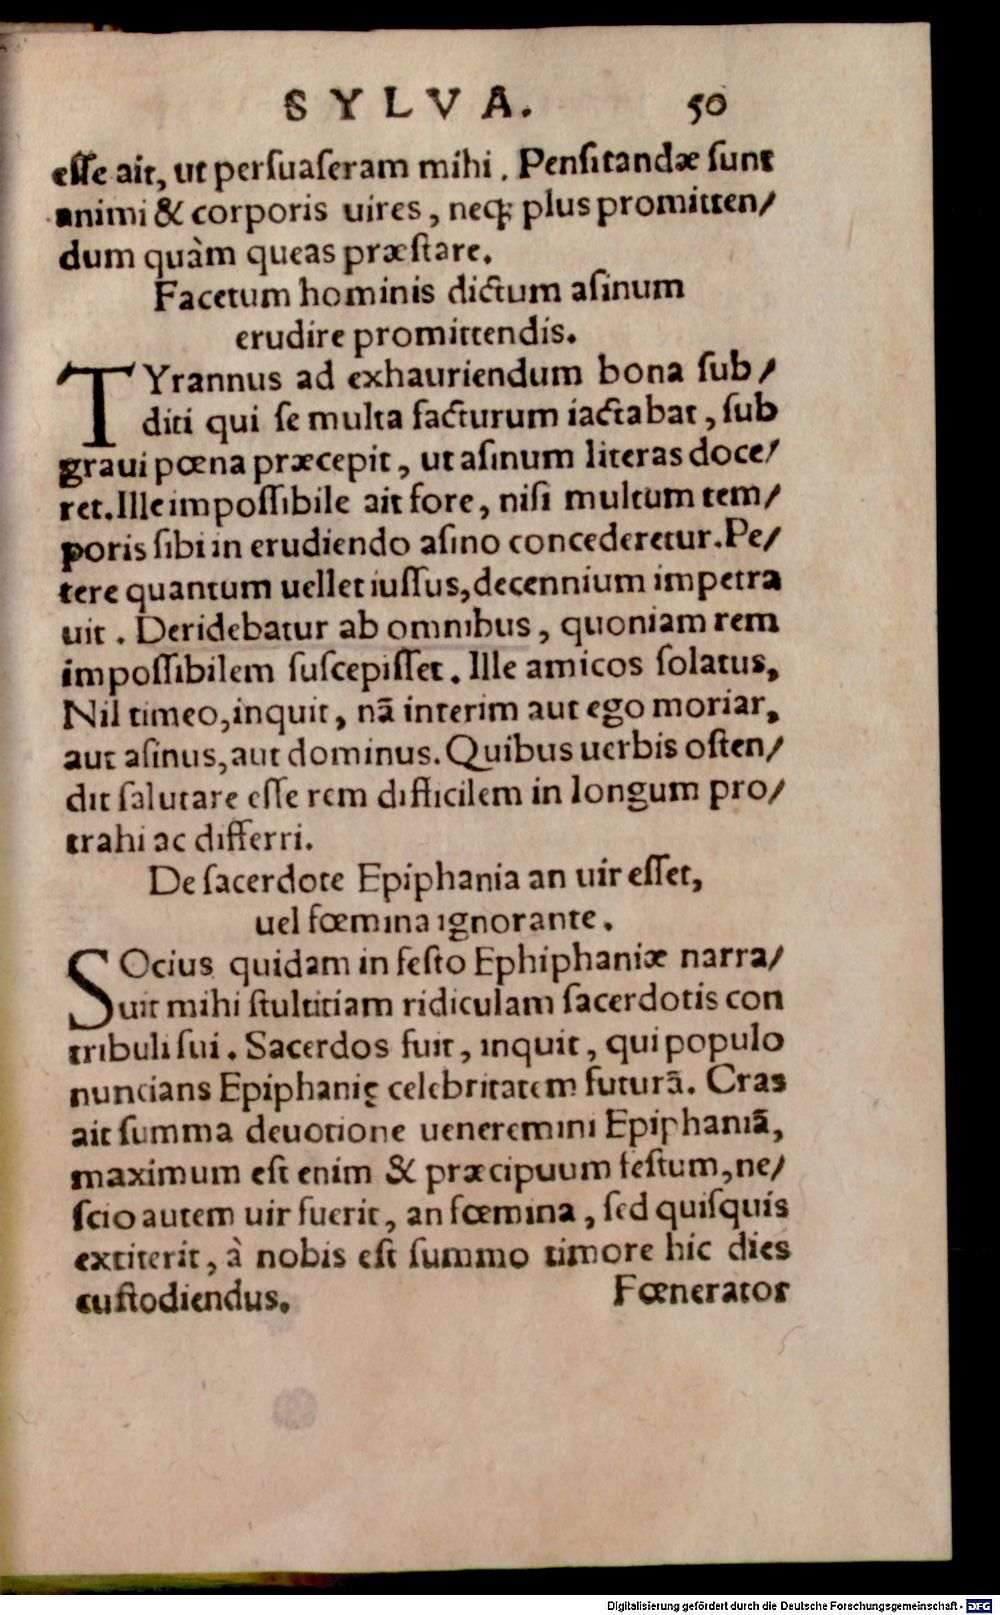 SYLVA. 50
eſſe ait, ut perſuaſeram mihi. Penſitandæ ſunt
animi & corporis uires, neq; plus promitten/
dum quàm queas præſtare.
Facetum hominis dictum aſinum
erudire promittendis.
TYrannus ad exhauriendum bona ſub/
diti qui ſe multa facturum iactabat, ſub
graui pœna præcepit, ut aſinum literas doce/
ret. Ille impoſſibile ait fore, niſi multum tem/
poris ſibi in erudiendo aſino concederetur. Pe/
tere quantum uellet iuſſus, decennium impetra
uit. Deridebatur ab omnibus, quoniam rem
impoſſibilem ſuſcepiſſet. Ille amicos ſolatus,
Nil timeo, inquit, nã interim aut ego moriar,
aut aſinus, aut dominus. Quibus uerbis oſten/
dit ſalutare eſſe rem difficilem in longum pro/
trahi ac differri.
De ſacerdote Epiphania an uir eſſet,
uel fœmina ignorante.
SOcius quidam in feſto Ephiphaniæ narra/
uit mihi ſtultitiam ridiculam ſacerdotis con
tribuli ſui. Sacerdos fuit, inquit, qui populo
nuncians Epiphanię celebritatem futurã. Cras
ait ſumma deuotione ueneremini Epiphaniã,
maximum eſt enim & præcipuum feſtum, ne/
ſcio autem uir fuerit, an fœmina, ſed quiſquis
extiterit, à nobis eſt ſummo timore hic dies
cuſtodiendus. Fœnerator
Digitalisierung gefördert durch die Deutsche Forschungsgemeinschaft - DFG